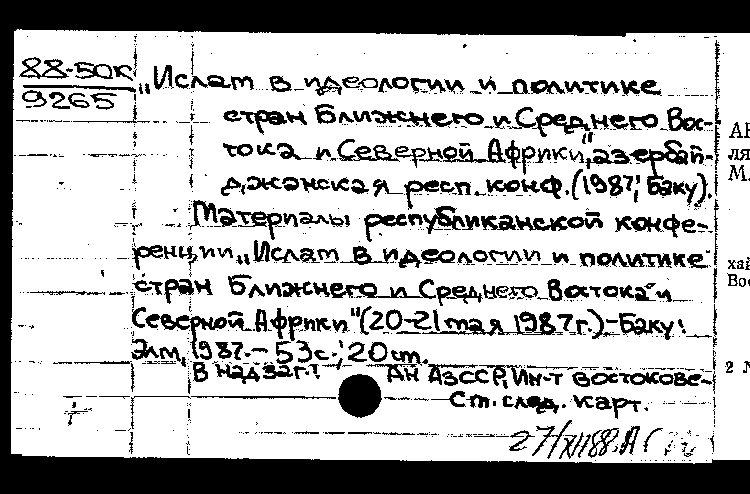 88-50К
9265
„Ислам в идеологии и политике
стран Ближнего и Среднего Вос-
тока и Северной Африки", азербай-
джанская респ. конф. (1987; Баку).
Материалы республиканской конфе-
ренции „Ислам в идеологии и политике
стран Ближнего и Среднего Востока и
Северной Африки" (20-21 мая 1987г.)-Баку:
Элм, 1987.- 53с.; 20 см.
В надзаг.: АН АзССР, Ин-т востокове-
См. след. карт.
27/XII88.
АН
ля
М.
хай
Вос
2